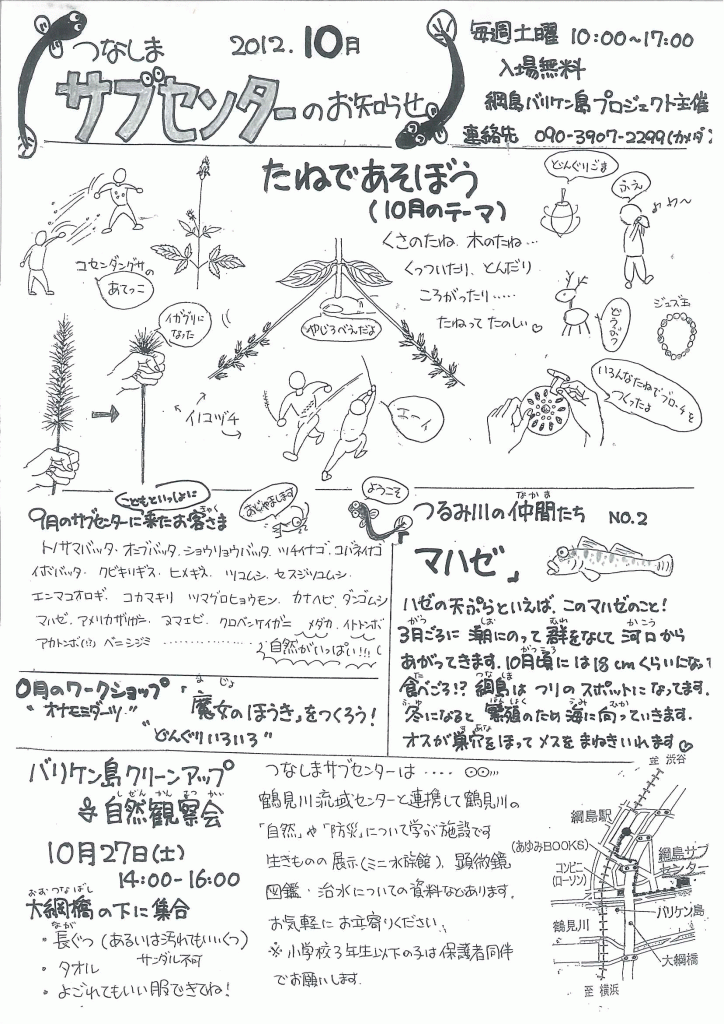 つなしま
2012.10月
サブセンターのお知らせ
毎週土曜 10:00~17:00
入場無料
綱島バリケン島プロジェクト主催
連絡先 090-3907-2299(カメダ)
たねであそぼう
(10月のテーマ)
くさのたね 木のたね…
くっついたり、とんだり
ころがったり……
たねって たのしい♡
コセンダングサの
あてっこ
イガグリに
なった
やじろべえだよ
イノコヅチ
エーイ
どんぐりごま
ふえ
どうぶつ
ジュズ玉
いろんなたねでブローチを
つくったよ
こどもといっしょに
9月のサブセンターに来たお客さま
きゃく
おじゃまします
ようこそ
トノサマバッタ、オンブバッタ、ショウリョウバッタ、ツチイナゴ、コバネイナゴ
イボバッタ、クビキリギス、ヒメギス、ツユムシ、セスジツユムシ、
エンマコオロギ、コカマキリ、ツマグロヒョウモン、カナヘビ、ダンゴムシ
マハゼ、アメリカザリガニ、ヌマエビ、クロベンケイガニ、メダカ、イトトンボ
アカトンボ(!?)、ベニシジミ
自然がいっぱい!!!
つるみ川の仲間たち NO.2
なかま
マハゼ
ハゼの天ぷらといえば、このマハゼのこと!
3月ごろに 潮にのって 群をなして 河口から
あがってきます。10月頃には18cmくらいになって
食べごろ!? 綱島は つりの スポットに なってます。
冬になると 繁殖のため 海に向っていきます。
オスが巣穴をほって メスを まねきいれます♡
0月のワークショップ
「魔女のほうき」をつくろう!
まじょ
"オナモミダーツ"
"どんぐりいろいろ"
バリケン島クリーンアップ
& 自然観察会
しぜんかんさつかい
10月27日(土)
14:00-16:00
おおつなばし
大綱橋の下に集合
・長ぐつ (あるいは汚れてもいいくつ)
なが
サンダル不可
・タオル
・よごれてもいい服できてね!
つなしまサブセンターは‥‥
鶴見川流域センターと連携して鶴見川の
「自然」や「防災」について学ぶ施設です
生きものの展示(ミニ水族館)、顕微鏡
図鑑・治水についての資料などあります。
お気軽にお立寄りください。
※小学校3年生以下の子は保護者同伴
でお願いします。
至 渋谷
綱島駅
(あゆみBOOKS)
コンビニ
(ローソン)
綱島サブ
センター
バリケン島
鶴見川
大綱橋
至 横浜